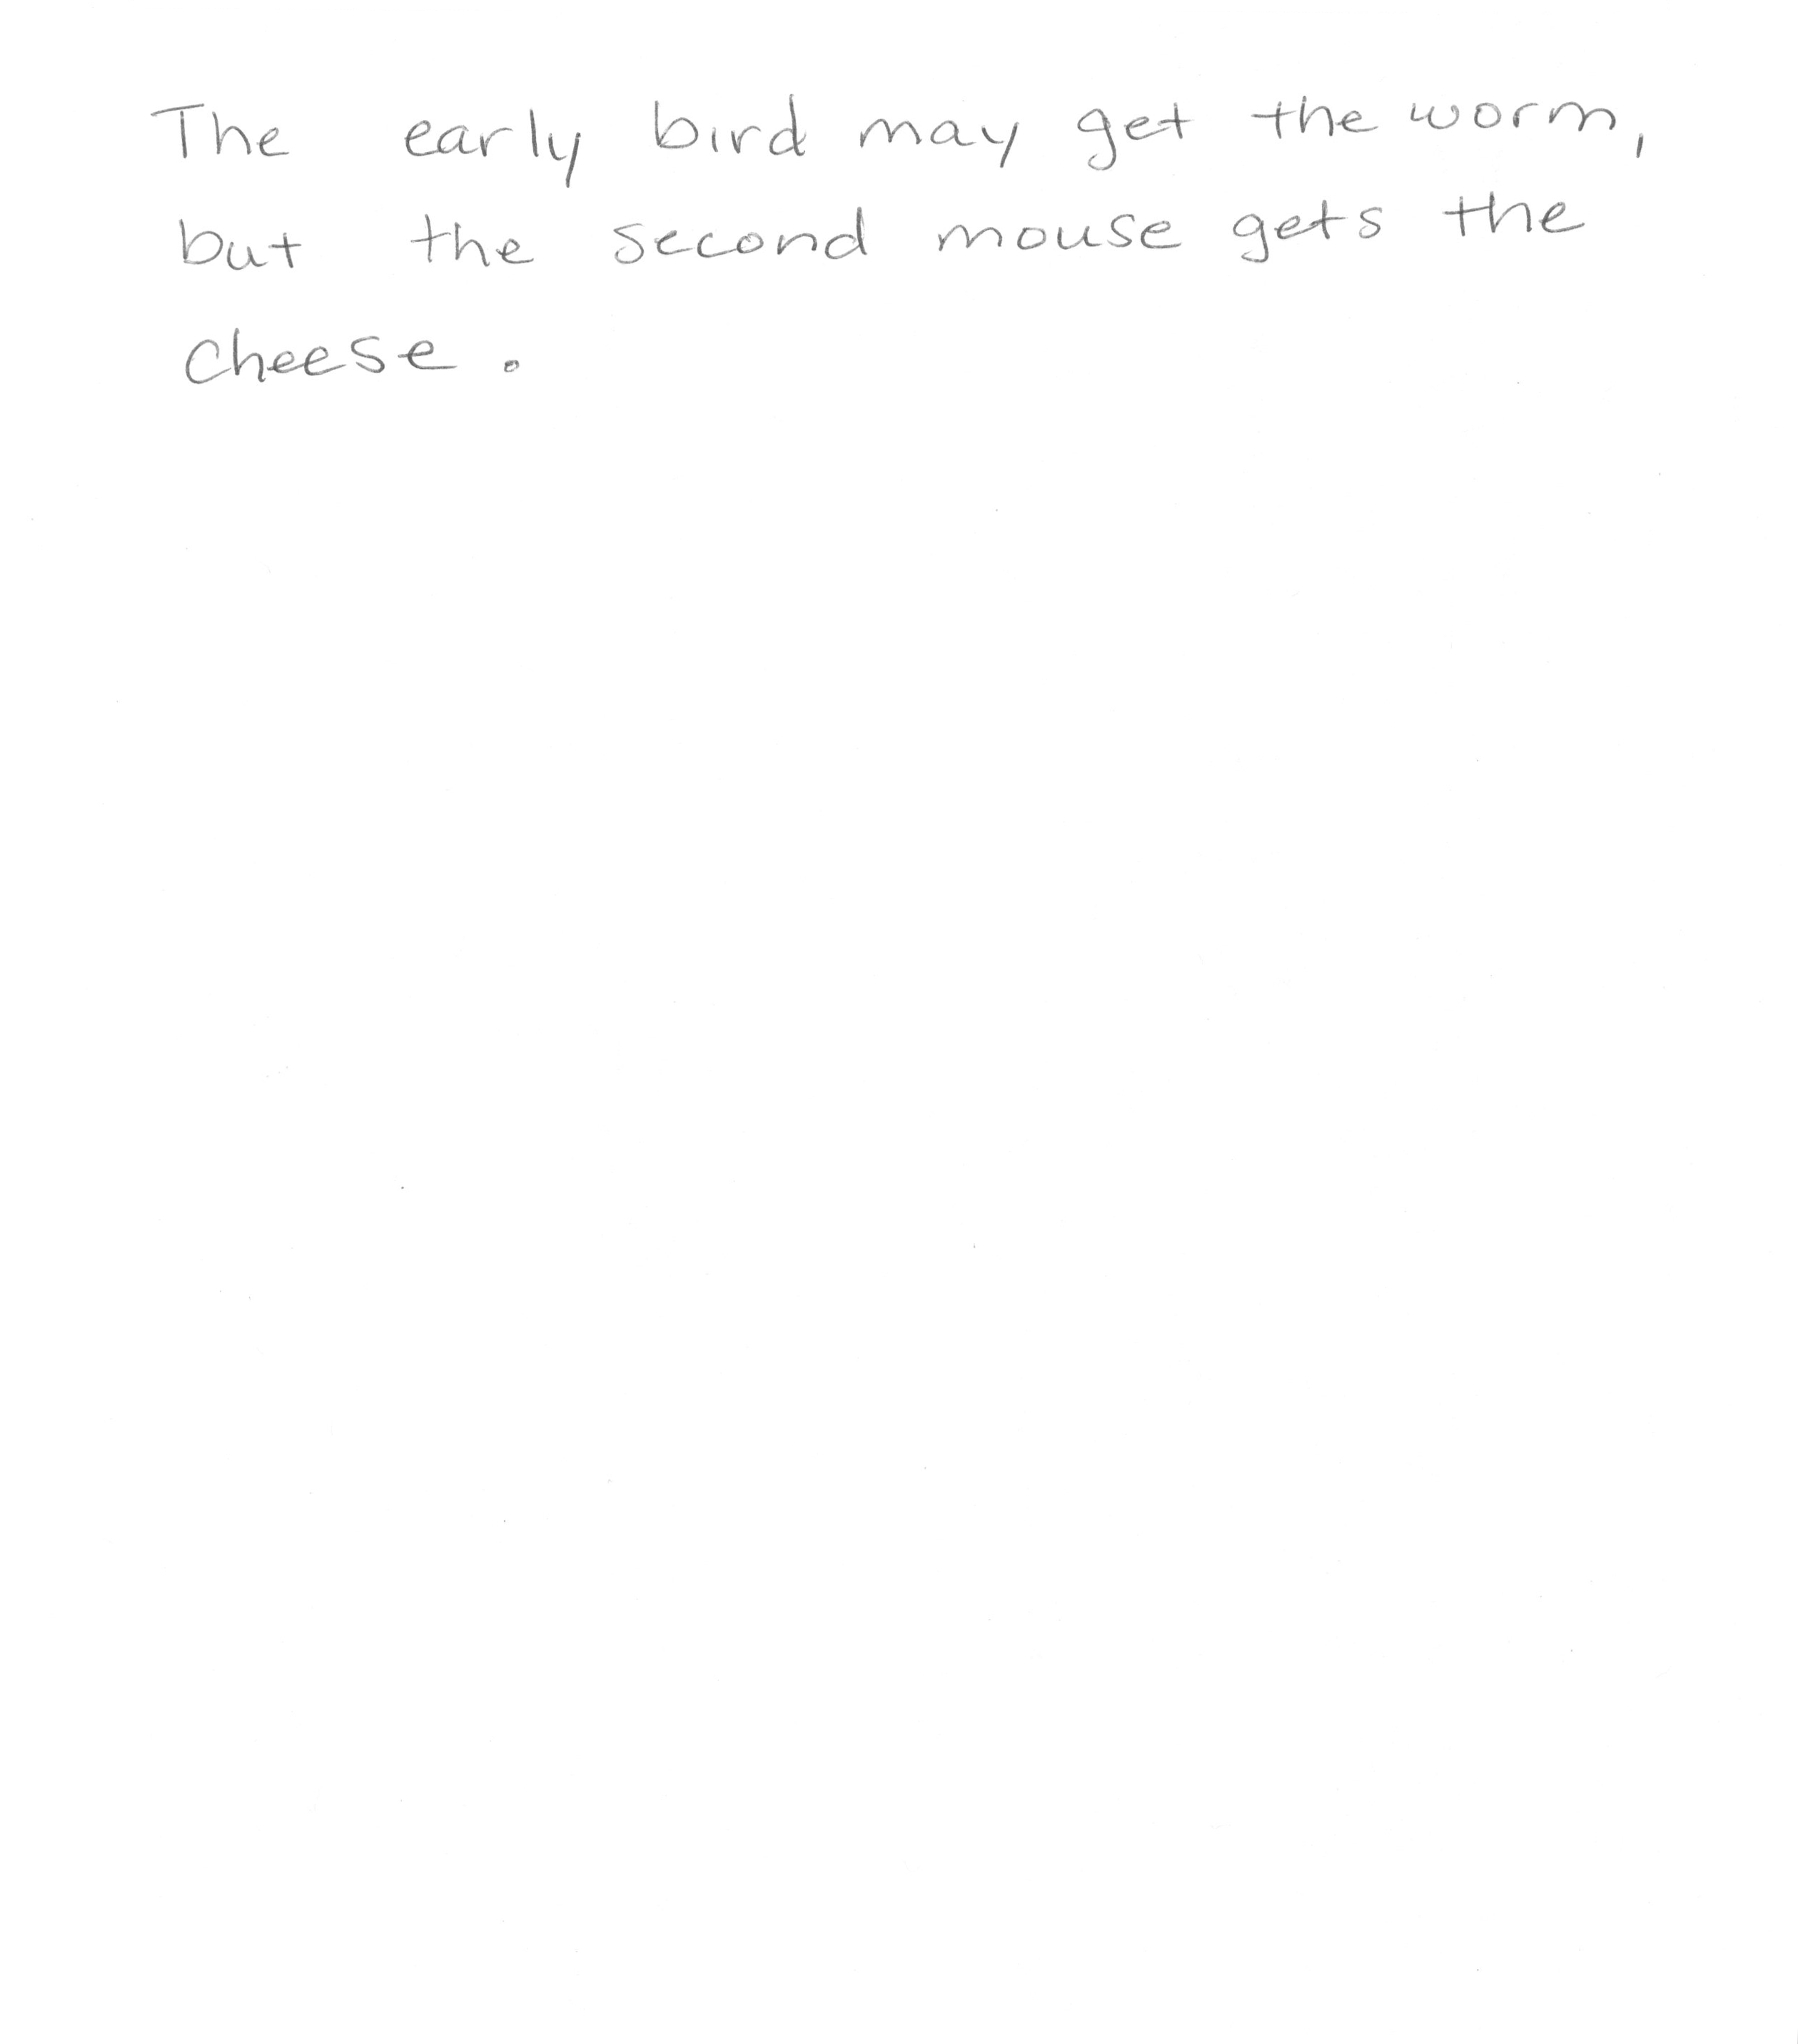 The early bird may get the worm,
but the second mouse gets the
cheese.